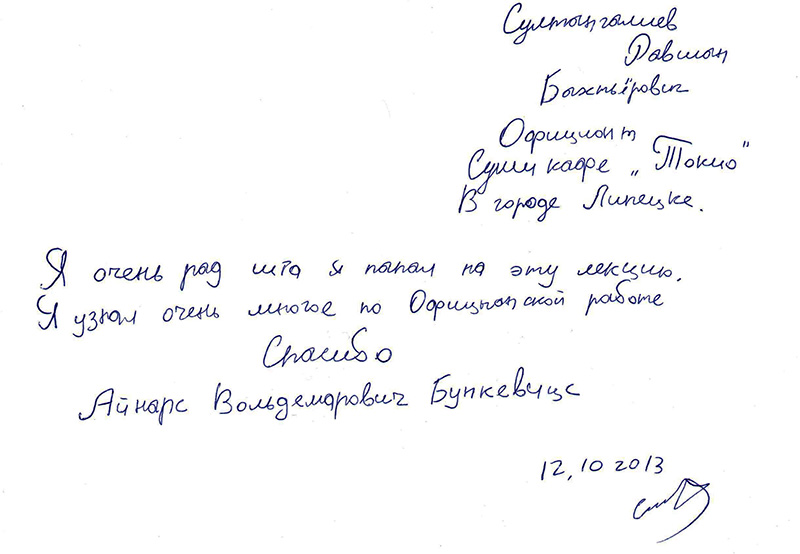 Султонгалиев
Равшан
Быхтиёрович
Официонт
Суши кафе „Токио"
В городе Липецке.
Я очень рад шта я папал на эту лекцию.
Я узнал очень многое по Официнской работе
Спасибо
Айнарс Вольдемарович Бункевицс
12,10 2013